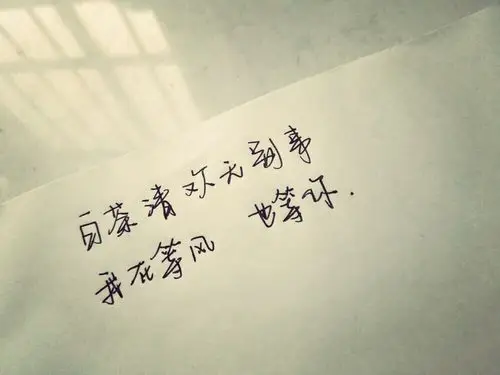 白茶清欢无别事
我在等风 也等你.